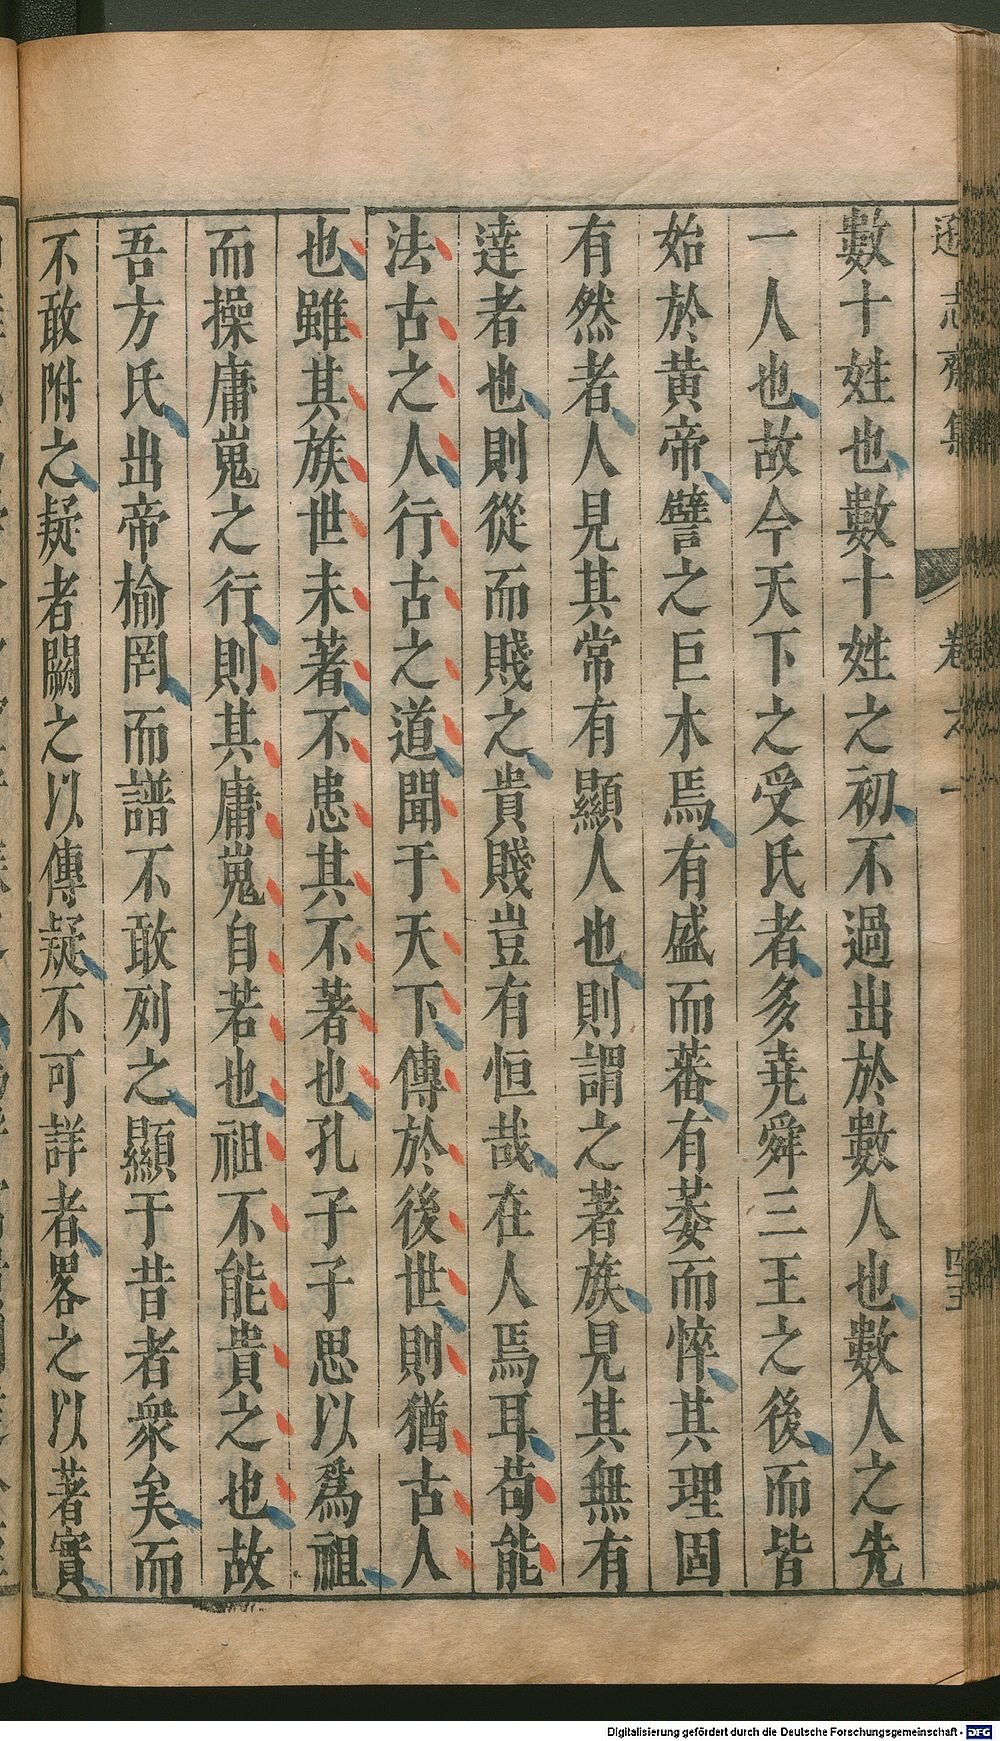 遜志齋集 卷之一
數十姓也數十姓之初不過出於數人也數人之先
一人也故今天下之受氏者多堯舜三王之後而皆
始於黄帝譬之巨木焉有盛而蕃有萎而悴其理固
有然者人見其常有顯人也則謂之著族見其無有
達者也則從而賤之貴賤豈有恒哉在人焉耳苟能
法古之人行古之道聞于天下傳於後世則猶古人
也雖其族世未著不患其不著也孔子子思以爲祖
而操庸嵬之行則其庸嵬自若也祖不能貴之也故
吾方氏出帝榆罔而譜不敢列之顯于昔者衆矣而
不敢附之疑者闕之以傳疑不可詳者畧之以著實
Digitalisierung gefördert durch die Deutsche Forschungsgemeinschaft - DFG